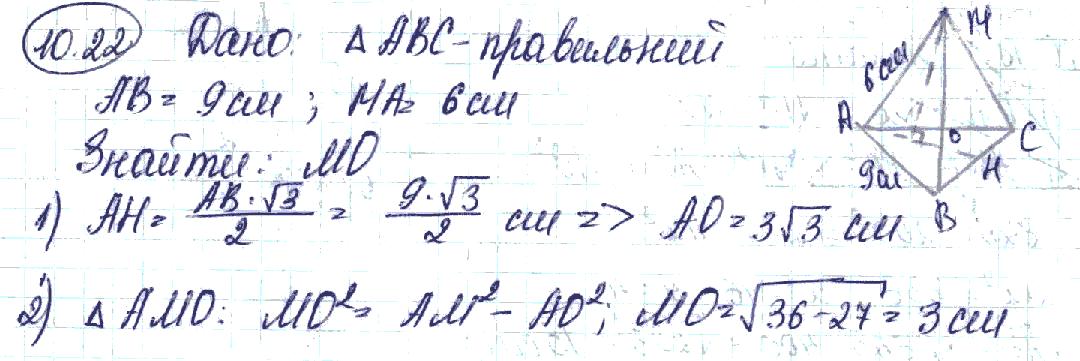 10.22 Дано: △ ABC - правильний
AB = 9 см ; MA = 6 см
Знайти: MO
1) AH = AB · √3 / 2 = 9 · √3 / 2 см => AO = 3√3 см
2) △ AMO: MO² = AM² - AO²; MO = √36 - 27 = 3 см
M
6 см
A
O
C
9 см
H
B